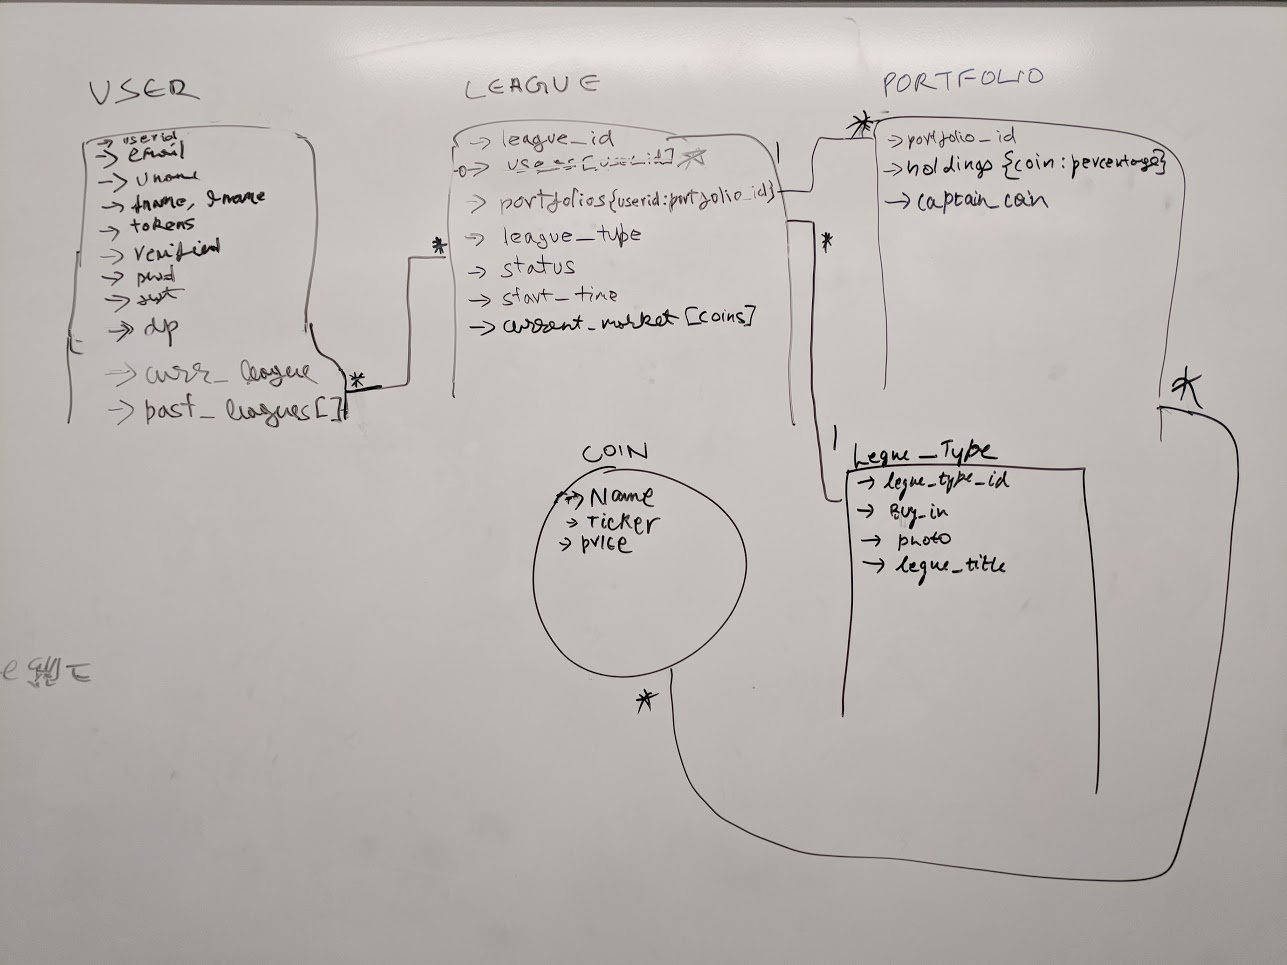 USER
→ userid
→ email
→ uname
→ fname, lname
→ tokens
→ verified
→ pwd
→ dp
→ curr_league
→ past_leagues[]
*
*
LEAGUE
→ league_id
→ portfolios{userid:portfolio_id}
→ league_type
→ status
→ start_time
→ current_market[coins]
1
*
*
PORTFOLIO
→ portfolio_id
→ holdings {coin:percentage}
→ captain_coin
*
COIN
→ Name
→ Ticker
→ price
*
1
Legue_Type
→ legue_type_id
→ Buy_in
→ photo
→ legue_title